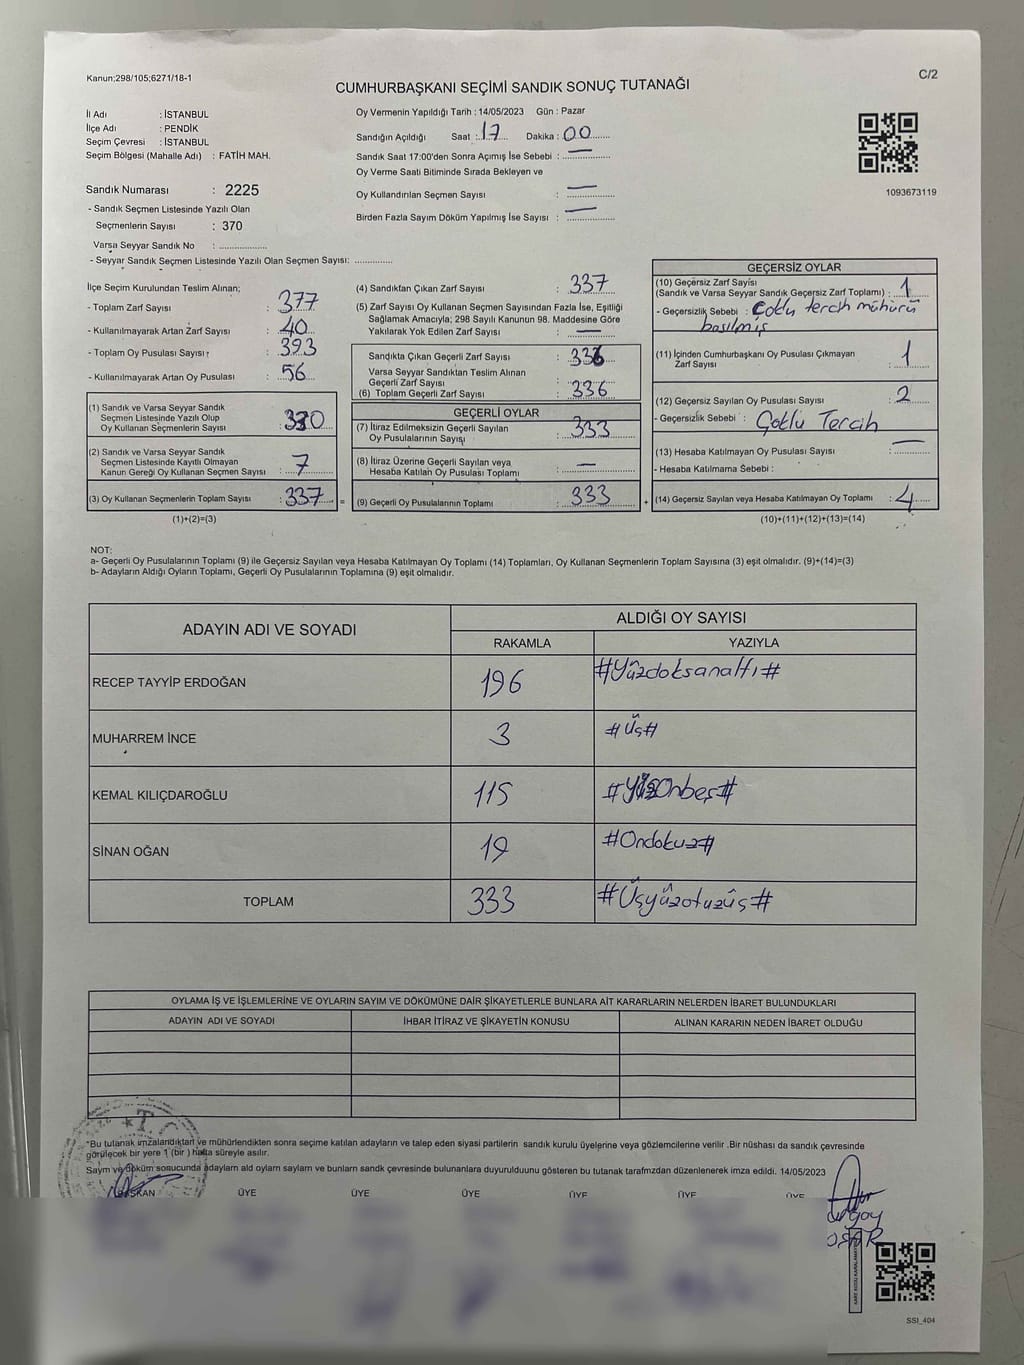 Kanun;298/105;6271/18-1
C/2
CUMHURBAŞKANI SEÇİMİ SANDIK SONUÇ TUTANAĞI
İl Adı : İSTANBUL
İlçe Adı : PENDİK
Seçim Çevresi : İSTANBUL
Seçim Bölgesi (Mahalle Adı) : FATİH MAH.
Sandık Numarası : 2225
- Sandık Seçmen Listesinde Yazılı Olan
Seçmenlerin Sayısı : 370
Varsa Seyyar Sandık No : ..................
- Seyyar Sandık Seçmen Listesinde Yazılı Olan Seçmen Sayısı: ..............
Oy Vermenin Yapıldığı Tarih : 14/05/2023 Gün : Pazar
Sandığın Açıldığı Saat : 17 Dakika : 00
Sandık Saat 17:00'den Sonra Açımış İse Sebebi : —
Oy Verme Saati Bitiminde Sırada Bekleyen ve
Oy Kullandırılan Seçmen Sayısı : —
Birden Fazla Sayım Döküm Yapılmış İse Sayısı : —
1093673119
İlçe Seçim Kurulundan Teslim Alınan;
- Toplam Zarf Sayısı : 377
- Kullanılmayarak Artan Zarf Sayısı : 40
- Toplam Oy Pusulası Sayısı : 393
- Kullanılmayarak Artan Oy Pusulası : 56
(1) Sandık ve Varsa Seyyar Sandık
Seçmen Listesinde Yazılı Olup
Oy Kullanan Seçmenlerin Sayısı : 330
(2) Sandık ve Varsa Seyyar Sandık
Seçmen Listesinde Kayıtlı Olmayan
Kanun Gereği Oy Kullanan Seçmen Sayısı : 7
(3) Oy Kullanan Seçmenlerin Toplam Sayısı : 337 =
(1)+(2)=(3)
(4) Sandıktan Çıkan Zarf Sayısı : 337
(5) Zarf Sayısı Oy Kullanan Seçmen Sayısından Fazla İse, Eşitliği
Sağlamak Amacıyla; 298 Sayılı Kanunun 98. Maddesine Göre
Yakılarak Yok Edilen Zarf Sayısı : —
Sandıkta Çıkan Geçerli Zarf Sayısı : 336
Varsa Seyyar Sandıktan Teslim Alınan
Geçerli Zarf Sayısı :
(6) Toplam Geçerli Zarf Sayısı : 336
GEÇERLİ OYLAR
(7) İtiraz Edilmeksizin Geçerli Sayılan
Oy Pusulalarının Sayısı : 333
(8) İtiraz Üzerine Geçerli Sayılan veya
Hesaba Katılan Oy Pusulası Toplamı : —
(9) Geçerli Oy Pusulalarının Toplamı : 333 +
GEÇERSİZ OYLAR
(10) Geçersiz Zarf Sayısı
(Sandık ve Varsa Seyyar Sandık Geçersiz Zarf Toplamı) : 1
- Geçersizlik Sebebi : Çoklu tercih mühürü
basılmış
(11) İçinden Cumhurbaşkanı Oy Pusulası Çıkmayan
Zarf Sayısı : 1
(12) Geçersiz Sayılan Oy Pusulası Sayısı : 2
- Geçersizlik Sebebi : Çoklu Tercih
(13) Hesaba Katılmayan Oy Pusulası Sayısı : —
- Hesaba Katılmama Sebebi :
(14) Geçersiz Sayılan veya Hesaba Katılmayan Oy Toplamı : 4
(10)+(11)+(12)+(13)=(14)
NOT:
a- Geçerli Oy Pusulalarının Toplamı (9) ile Geçersiz Sayılan veya Hesaba Katılmayan Oy Toplamı (14) Toplamları, Oy Kullanan Seçmenlerin Toplam Sayısına (3) eşit olmalıdır. (9)+(14)=(3)
b- Adayların Aldığı Oyların Toplamı, Geçerli Oy Pusulalarının Toplamına (9) eşit olmalıdır.
ADAYIN ADI VE SOYADI ALDIĞI OY SAYISI
RAKAMLA YAZIYLA
RECEP TAYYİP ERDOĞAN 196 #Yüzdoksanaltı#
MUHARREM İNCE 3 #Üç#
KEMAL KILIÇDAROĞLU 115 #YüzOnbeş#
SİNAN OĞAN 19 #Ondokuz#
TOPLAM 333 #Üçyüzotuzüç#
OYLAMA İŞ VE İŞLEMLERİNE VE OYLARIN SAYIM VE DÖKÜMÜNE DAİR ŞİKAYETLERLE BUNLARA AİT KARARLARIN NELERDEN İBARET BULUNDUKLARI
ADAYIN ADI VE SOYADI İHBAR İTİRAZ VE ŞİKAYETİN KONUSU ALINAN KARARIN NEDEN İBARET OLDUĞU
T.C.
*Bu tutanak imzalandıktan ve mühürlendikten sonra seçime katılan adayların ve talep eden siyasi partilerin sandık kurulu üyelerine veya gözlemcilerine verilir .Bir nüshası da sandık çevresinde
görülecek bir yere 1 (bir ) hafta süreyle asılır.
Sayım ve döküm sonucunda adayların ald oyların sayıların ve bunların sandık çevresinde bulunanlara duyurulduunu gösteren bu tutanak tarafmzdan düzenlenerek imza edildi. 14/05/2023
BAŞKAN ÜYE ÜYE ÜYE ÜYE ÜYE ÜYE
SSI_404